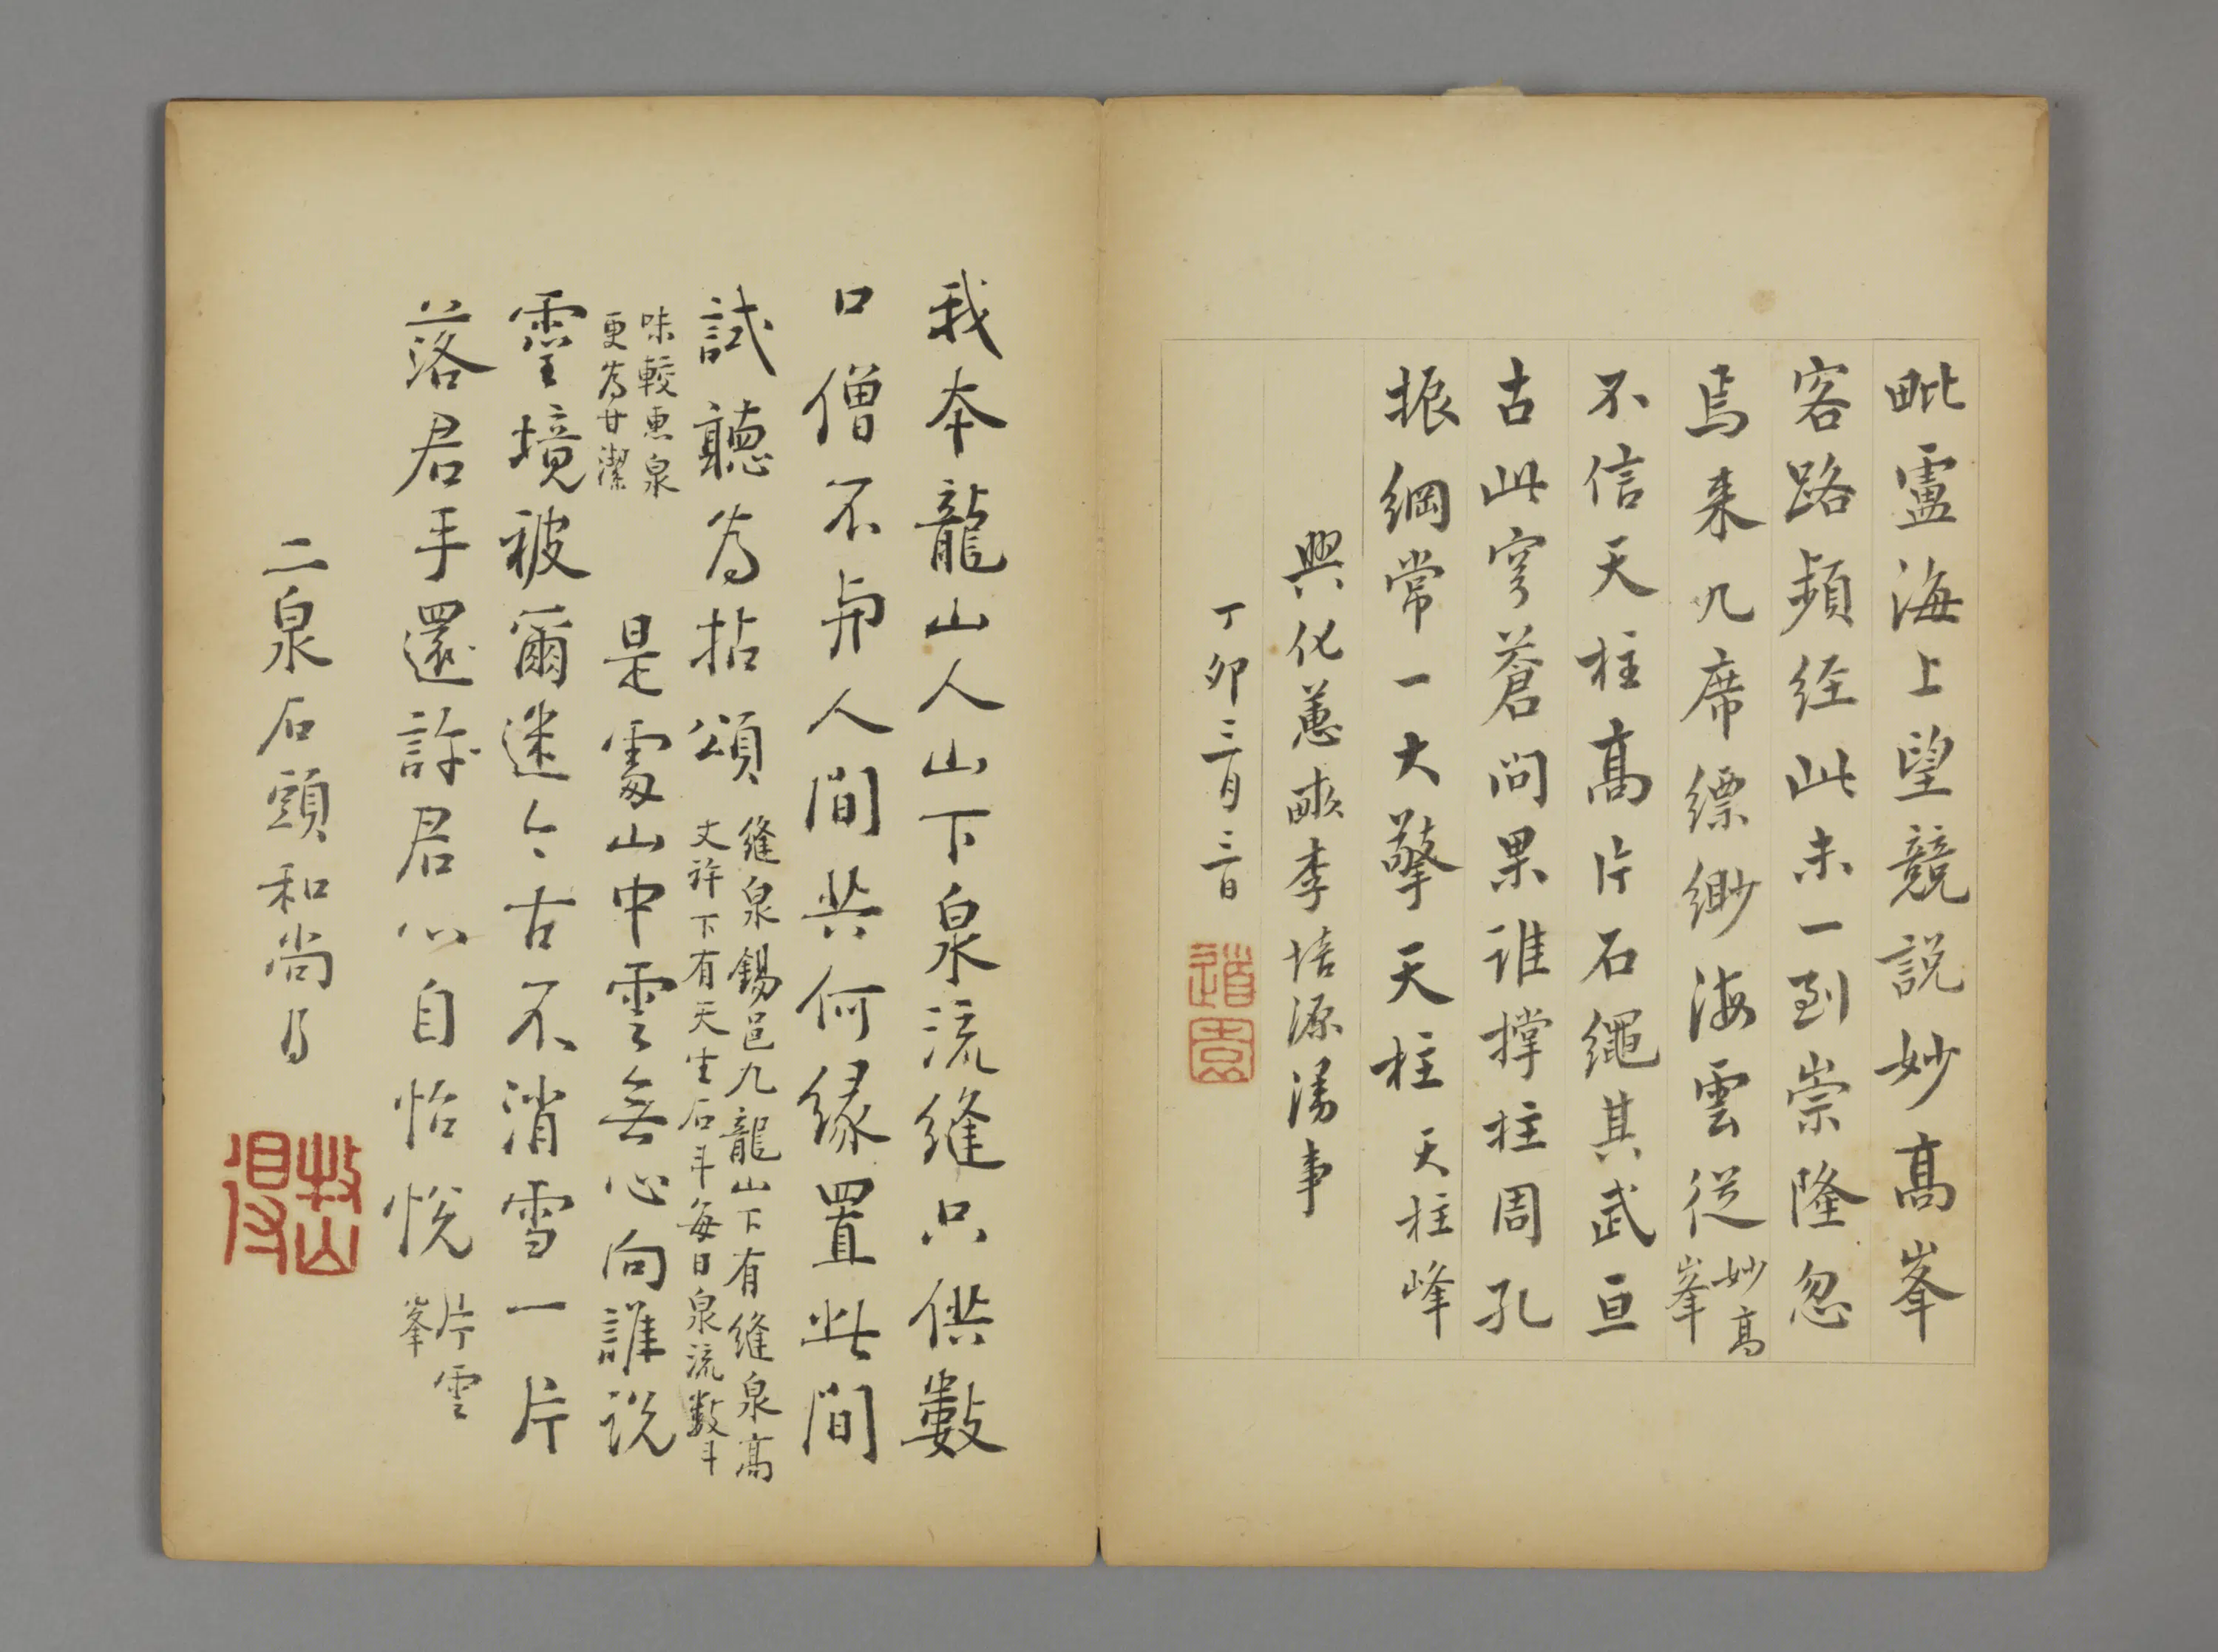 毗盧海上望競説妙髙峯
客路頻经此未一到崇隆忽
焉来几席縹緲海雲従
妙髙
峯
不信天柱髙片石繩其武亘
古此穹蒼问果誰撑柱周孔
振綱常一大擎天柱
天柱峰
興化蕙畹李培源湯事
丁卯三月三日
道園
我本龍山人山下泉流縫只供數
口僧不与人間共何緣置此間
試聽为拈頌
縫泉錫邑九龍山下有縫泉髙
丈许下有天生石斗每日泉流數斗
味較惠泉
更为甘潔
是處山中雲無心向誰说
靈境被爾迷今古不消雪一片
落君手還許君心自怡悦
片雲
峯
二泉石頭和尚